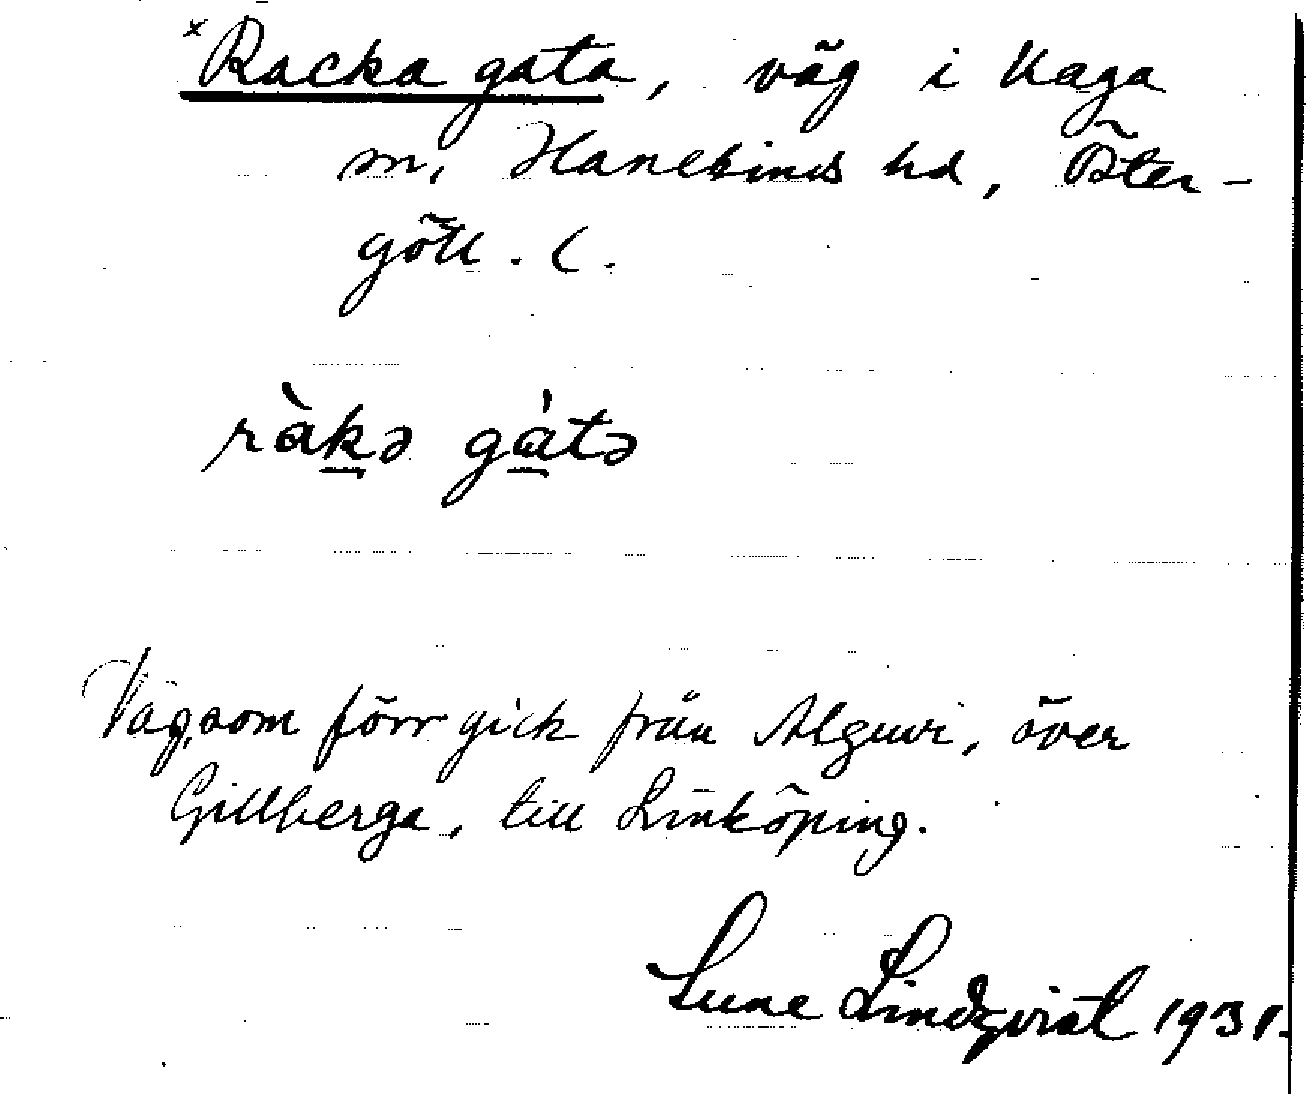 ×Racka gata, väg i Kaga
sn, Hanekinds hd, Öster-
götl. l.
ràkə gàtə
Väg, som förr gick från Algutvi, över
Gillberga, till Linköping.
Sune Lindqvist 1931.